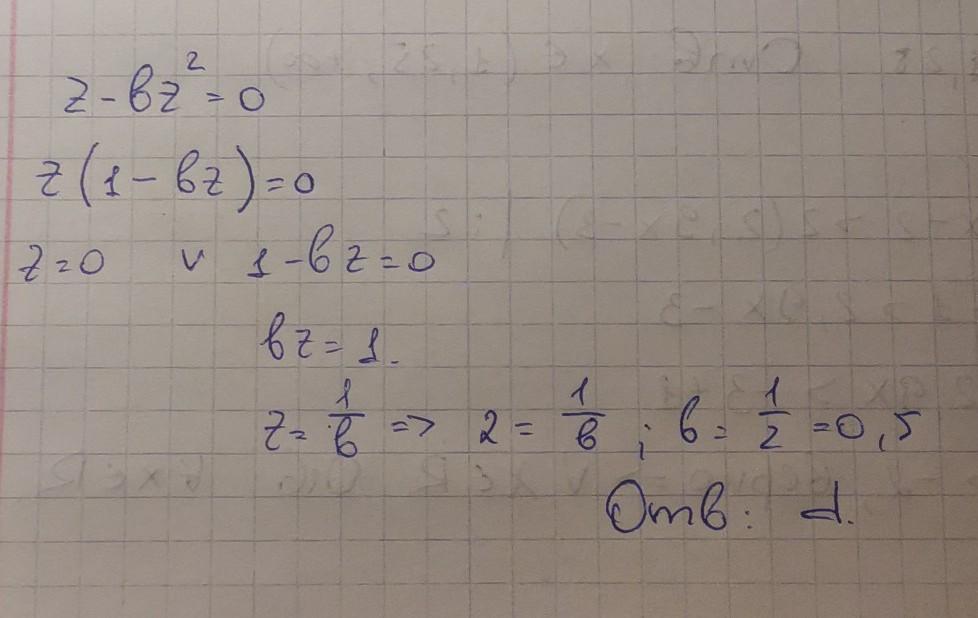 z - bz² = 0
z(1 - bz) = 0
z = 0 v 1 - bz = 0
bz = 1.
z = 1/b => 2 = 1/b ; b = 1/2 = 0,5
Отв: d.